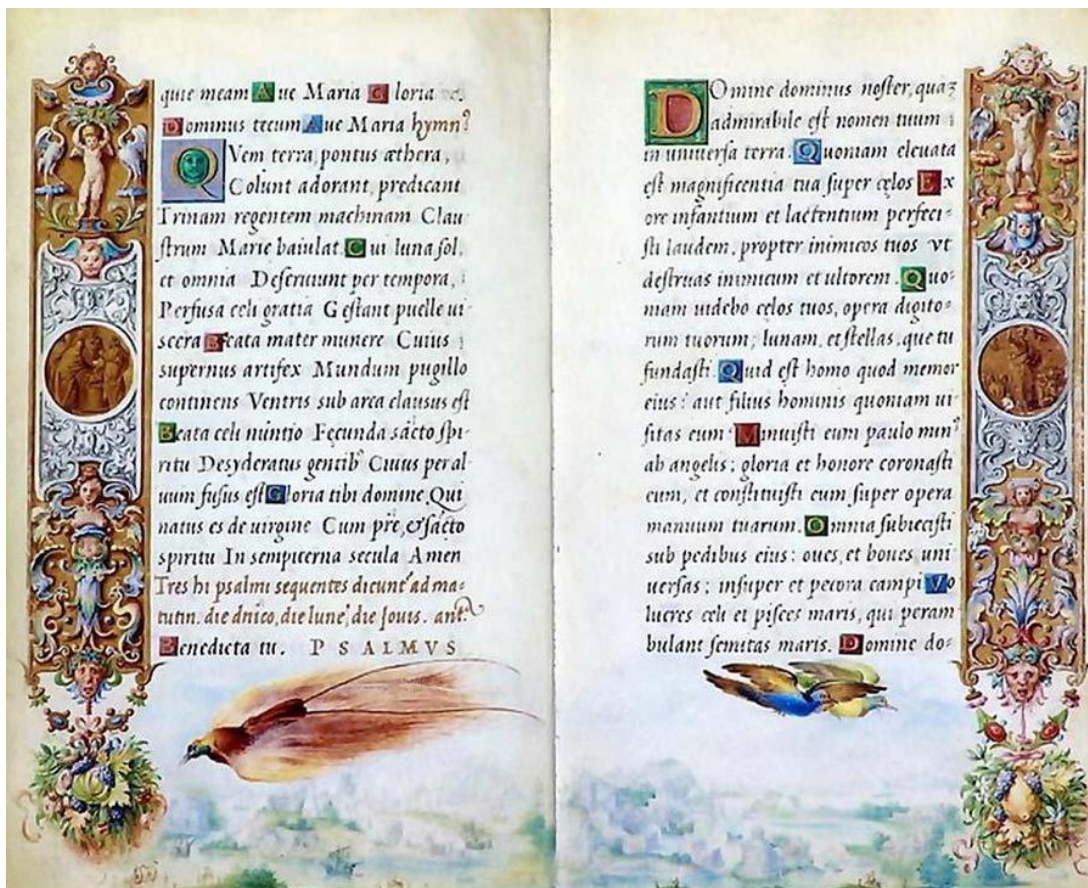 quie meam Aue Maria Gloria
Dominus tecum Aue Maria hymn⁹
QVem terra, pontus æthera,
Colunt adorant, predicant
Trinam regentem machinam Clau
ſtrum Marie baiulat. Cui luna, ſol,
et omnia Deſeruiunt per tempora,
Perfuſa celi gratia Geſtant puelle ui-
ſcera Beata mater munere Cuius
ſupernus artifex Mundum pugillo
continens Ventris sub arca clauſus eſt
Beata celi nuntio Fęcunda sācto ſpi-
ritu Deſyderatus gentib⁹ Cuius per al-
uum fuſus eſt Gloria tibi domine, Qui
natus es de uirgine Cum prē, & ſācto
spiritu In sempiterna secula Amen
Tres hi pſalmi sequentes dicunt᷑ ad ma-
tutin. die dnīco, die lune, die Jouis. ant.
Benedicta tu. PSALMVS
DOmine dominus noſter, quaꝫ
admirabile eſt nomen tuum
in uniuerſa terra. Quoniam eleuata
eſt magnificentia tua ſuper cęlos Ex
ore infantium et lactentium perfeci-
ſti laudem, propter inimicos tuos vt
deſtruas inimicum et ultorem. Quo-
niam uidebo cęlos tuos, opera digito-
rum tuorum; lunam, et ſtellas, que tu
fundaſti. Quid eſt homo quod memor
eius: aut filius hominis quoniam ui-
ſitas eum. Minuiſti eum paulo min⁹
ab angelis; gloria et honore coronaſti
eum, et conſtituiſti eum ſuper opera
manuum tuarum. Omnia ſubieciſti
sub pedibus eius: oues, et boues, uni
uerſas; inſuper et pecora campi Vo
lucres celi et piſces maris, qui peram
bulant ſemitas maris. Domine do-